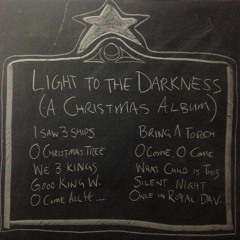 LIGHT TO THE DARKNESS
(A CHRISTMAS ALBUM)
I SAW 3 SHIPS
O CHRISTMAS TREE
WE 3 KINGS
GOOD KING W.
O COME ALL YE...
BRING A TORCH
O COME, O COME
WHAT CHILD IS THIS
SILENT NIGHT
ONCE IN ROYAL DAV.